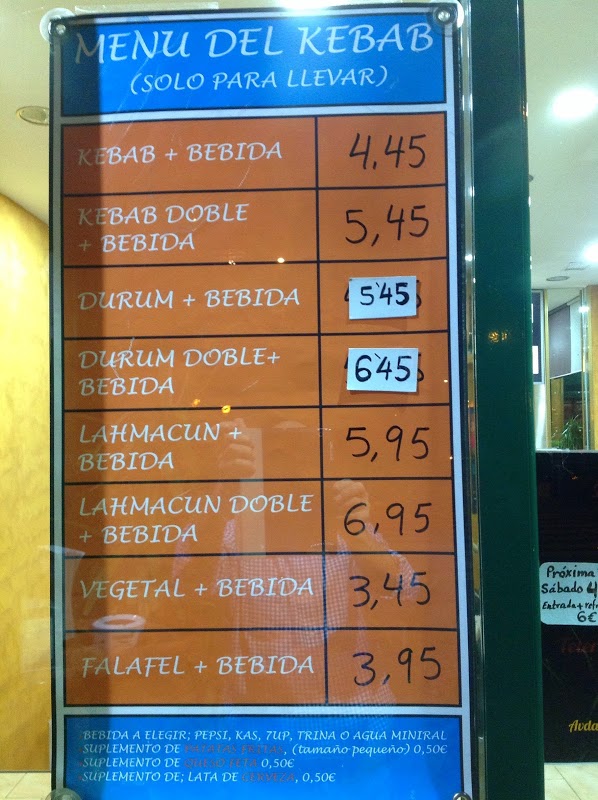 MENU DEL KEBAB
(SOLO PARA LLEVAR)
KEBAB + BEBIDA 4,45
KEBAB DOBLE
+ BEBIDA 5,45
DURUM + BEBIDA 5'45
DURUM DOBLE+
BEBIDA 6'45
LAHMACUN +
BEBIDA 5,95
LAHMACUN DOBLE
+ BEBIDA 6,95
VEGETAL + BEBIDA 3,45
FALAFEL + BEBIDA 3,95
BEBIDA A ELEGIR; PEPSI, KAS, 7UP, TRINA O AGUA MINIRAL
SUPLEMENTO DE PATATAS FRITAS, (tamaño pequeño) 0,50€
SUPLEMENTO DE QUESO FETA 0,50€
SUPLEMENTO DE; LATA DE CERVEZA, 0,50€
Próxima
Sábado
Entrada + refr
6€
Avda